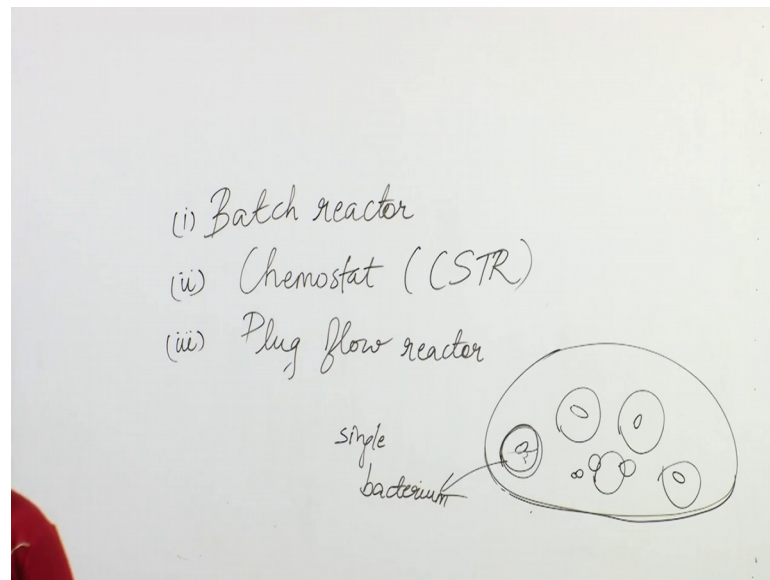 (i) Batch reactor
(ii) Chemostat (CSTR)
(iii) Plug flow reactor
single
bacterium